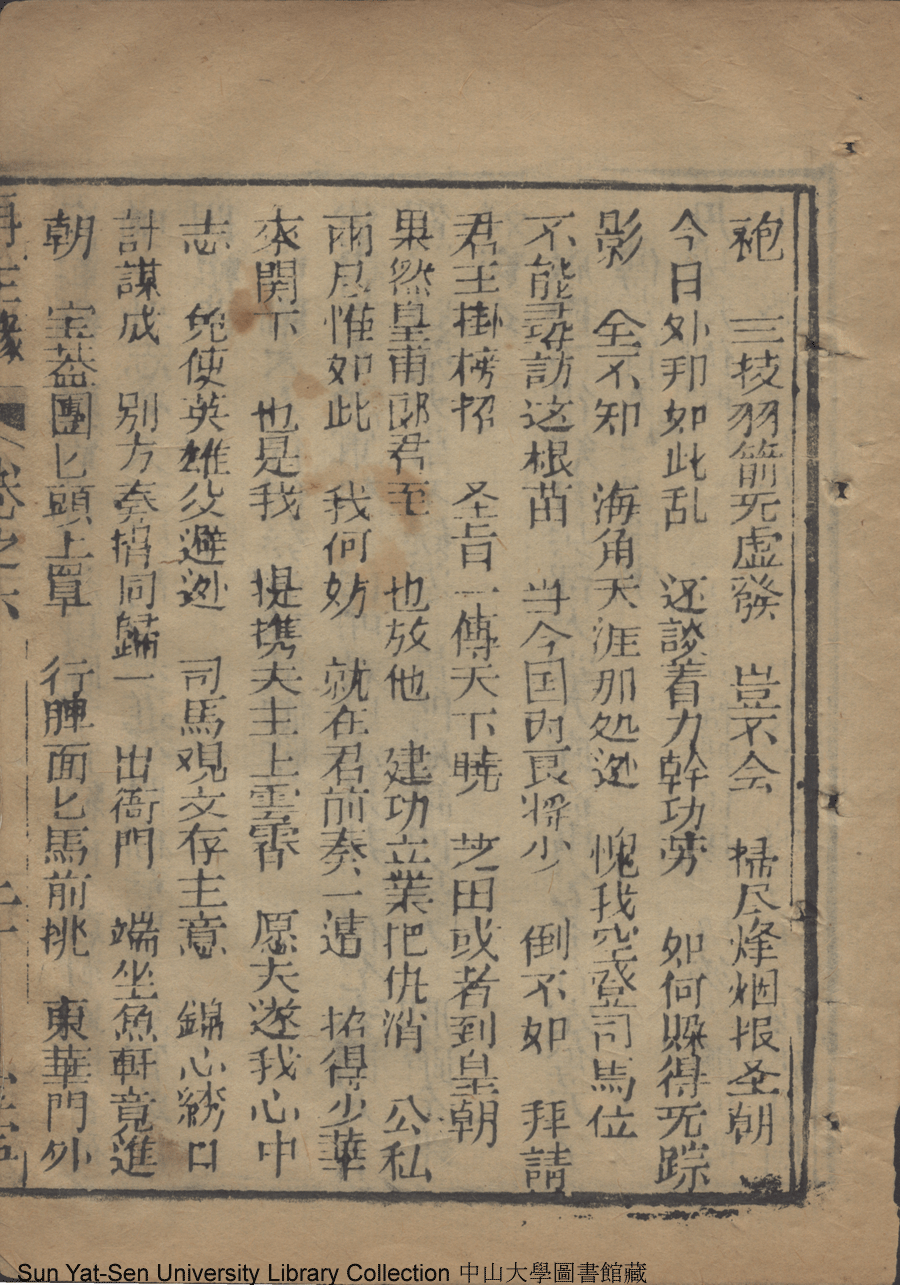 袍　三技羽箭旡虚發　豈不会　掃尽烽烟报圣朝
今日外邦如此乱　还談着力幹功劳　如何躱得旡踪
影　全不知　海角天涯那处逃　愧我空登司馬位
不能尋訪这根苗　当今国内良将少　倒不如　拜請
君王掛榜招　圣旨一傳天下曉　芝田或者到皇朝
果然皇甫郎君至　也放他　建功立業把仇消　公私
兩尽惟如此　我何妨　就在君前奏一遭　招得少華
來闕下　也是我　提携夫主上雲霄　愿夫遂我心中
志　免使英雄父避逃　司馬观文存主意　錦心綉口
計謀成　别方奏招同歸一　出衙門　端坐魚軒竟進
朝　宝盖團匕頭上罩　行牌面匕馬前挑　東華門外
再生緣　卷之六
Sun Yat-Sen University Library Collection 中山大學圖書館藏